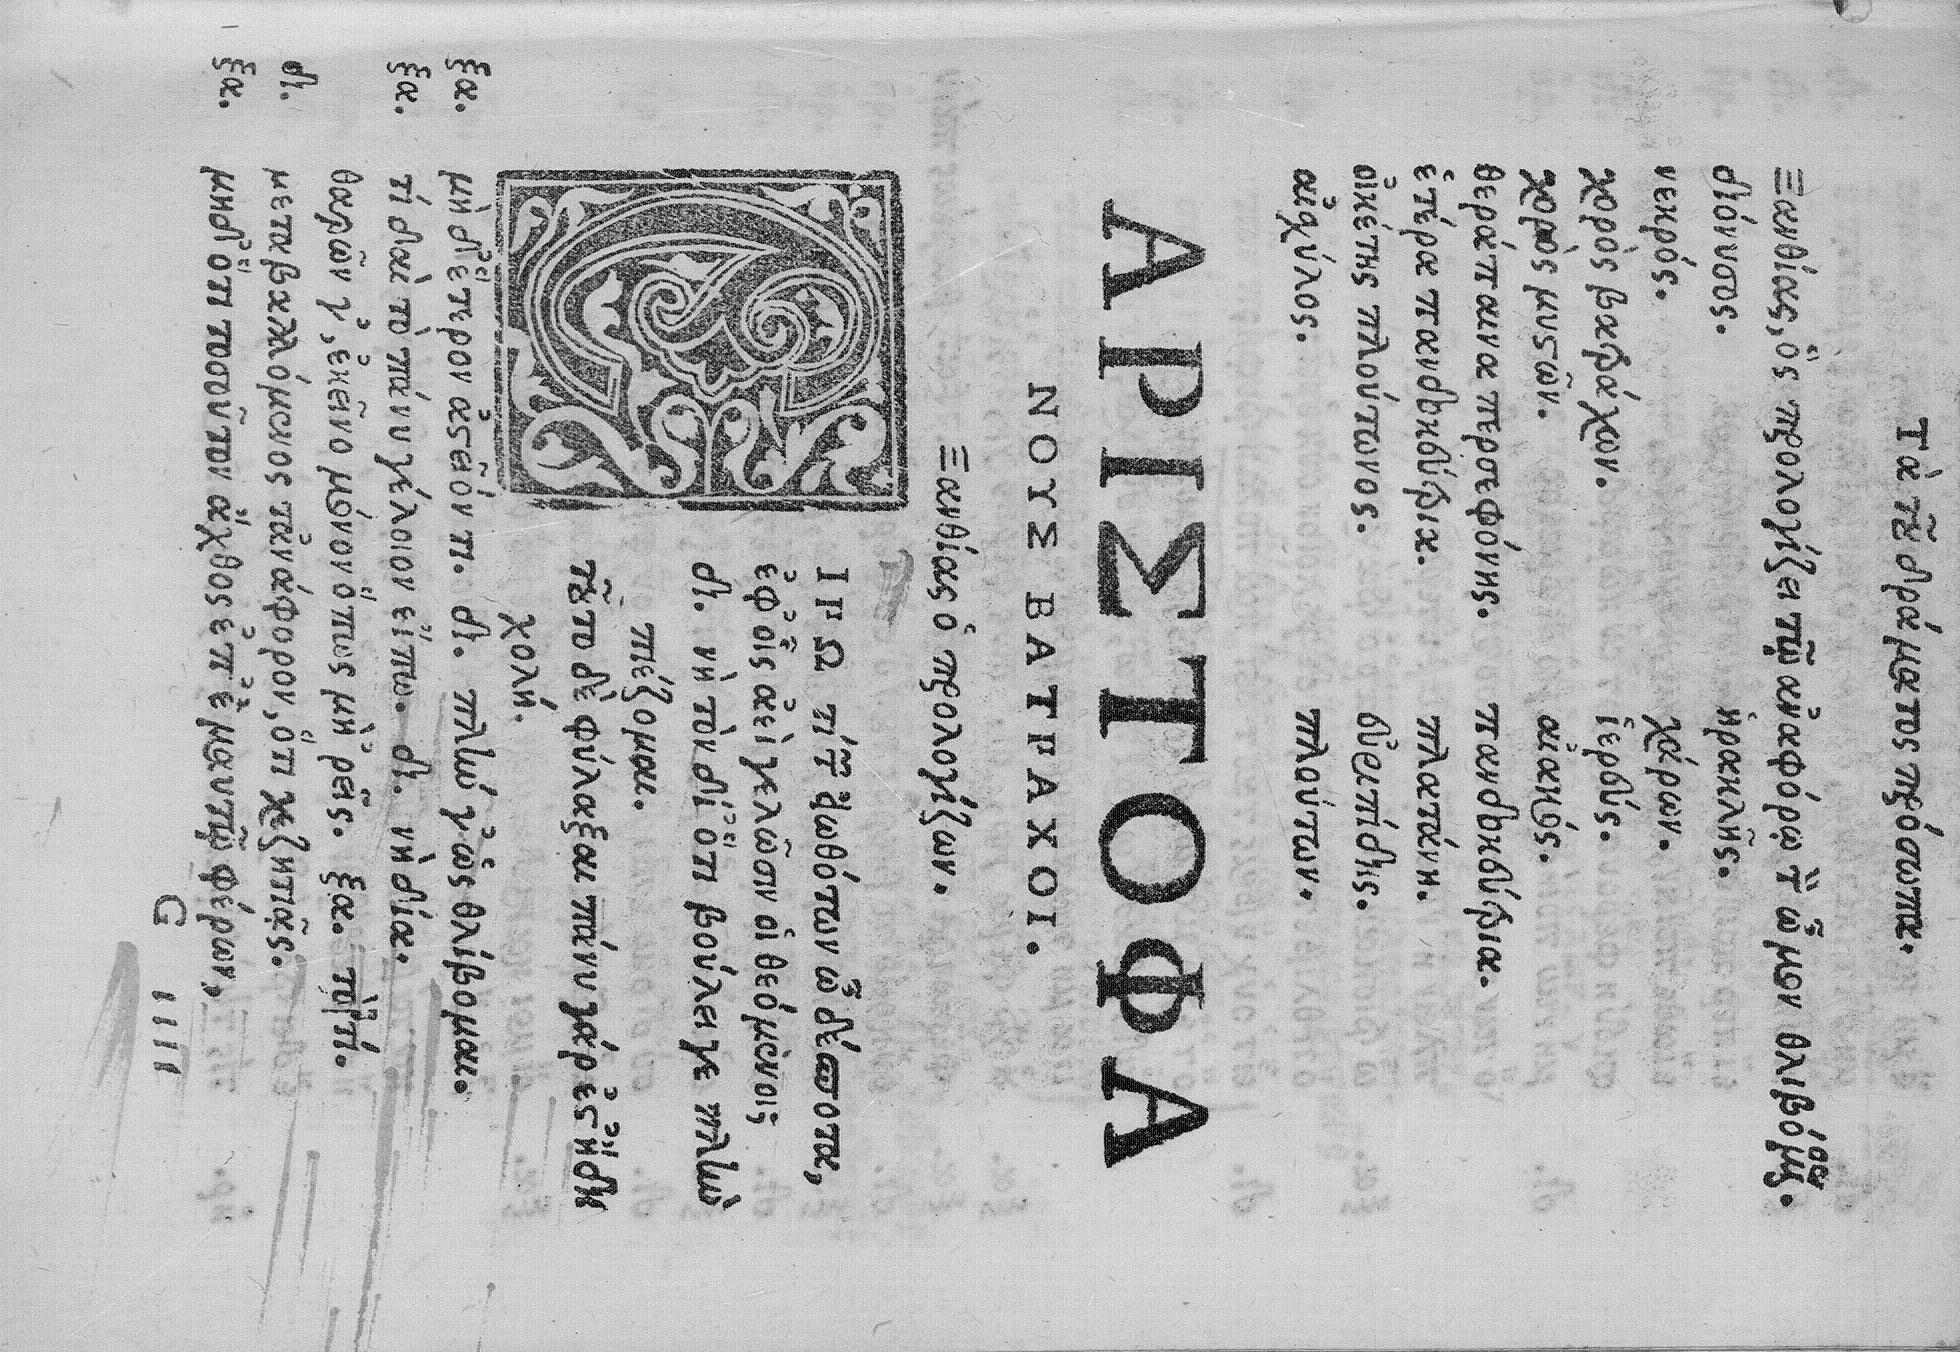 Τὰ τοῦ δράματος πρόσωπα.
Ξανθίας, ὃς προλογίζει τῷ ἀναφόρῳ τ ὦμον θλιβόμενος.
διόνυσος. ἡρακλῆς.
νεκρός. χάρων.
χορὸς βατράχων. ἱερεύς.
χορὸς μυστῶν. αἰακός.
θεράπαινα περσεφόνης. πανδοκεύτρια.
ἑτέρα πανδοκεύτρια. πλατάνη.
οἰκέτης πλούτωνος. εὐριπίδης.
αἰσχύλος. πλούτων.
ΑΡΙΣΤΟΦΑ
ΝΟΥΣ ΒΑΤΡΑΧΟΙ.
Ξανθίας ὁ προλογίζων.
ΙΠΩ τί τῶν εἰωθότων ὦ δέσποτα,
ἐφ' οἷς ἀεὶ γελῶσιν οἱ θεώμενοι;
δι. νὴ τὸν δί' ὅτι βούλει γε πλὴν
πιέζομαι.
τοῦτο δὲ φύλαξαι πάνυ γάρ ἐστ' ἤδη
χολή.
ξα. μὴ δ' ἕτερον ἀστεῖόν τι. δι. πλήν γ' ὡς θλίβομαι.
ξα. τί δαὶ τὸ πάνυ γέλοιον εἴπω. δι. νὴ δία.
θαρρῶν γ', ἐκεῖνο μόνον ὅπως μὴ ῥεῖς. ξα. τὸ τί.
δι. μεταβαλλόμενος τἀνάφορον, ὅτι χεζητιᾷς.
ξα. μηδ' ὅτι τοσοῦτον ἄχθος ἐπ' ἐμαυτῷ φέρων,
G iiii